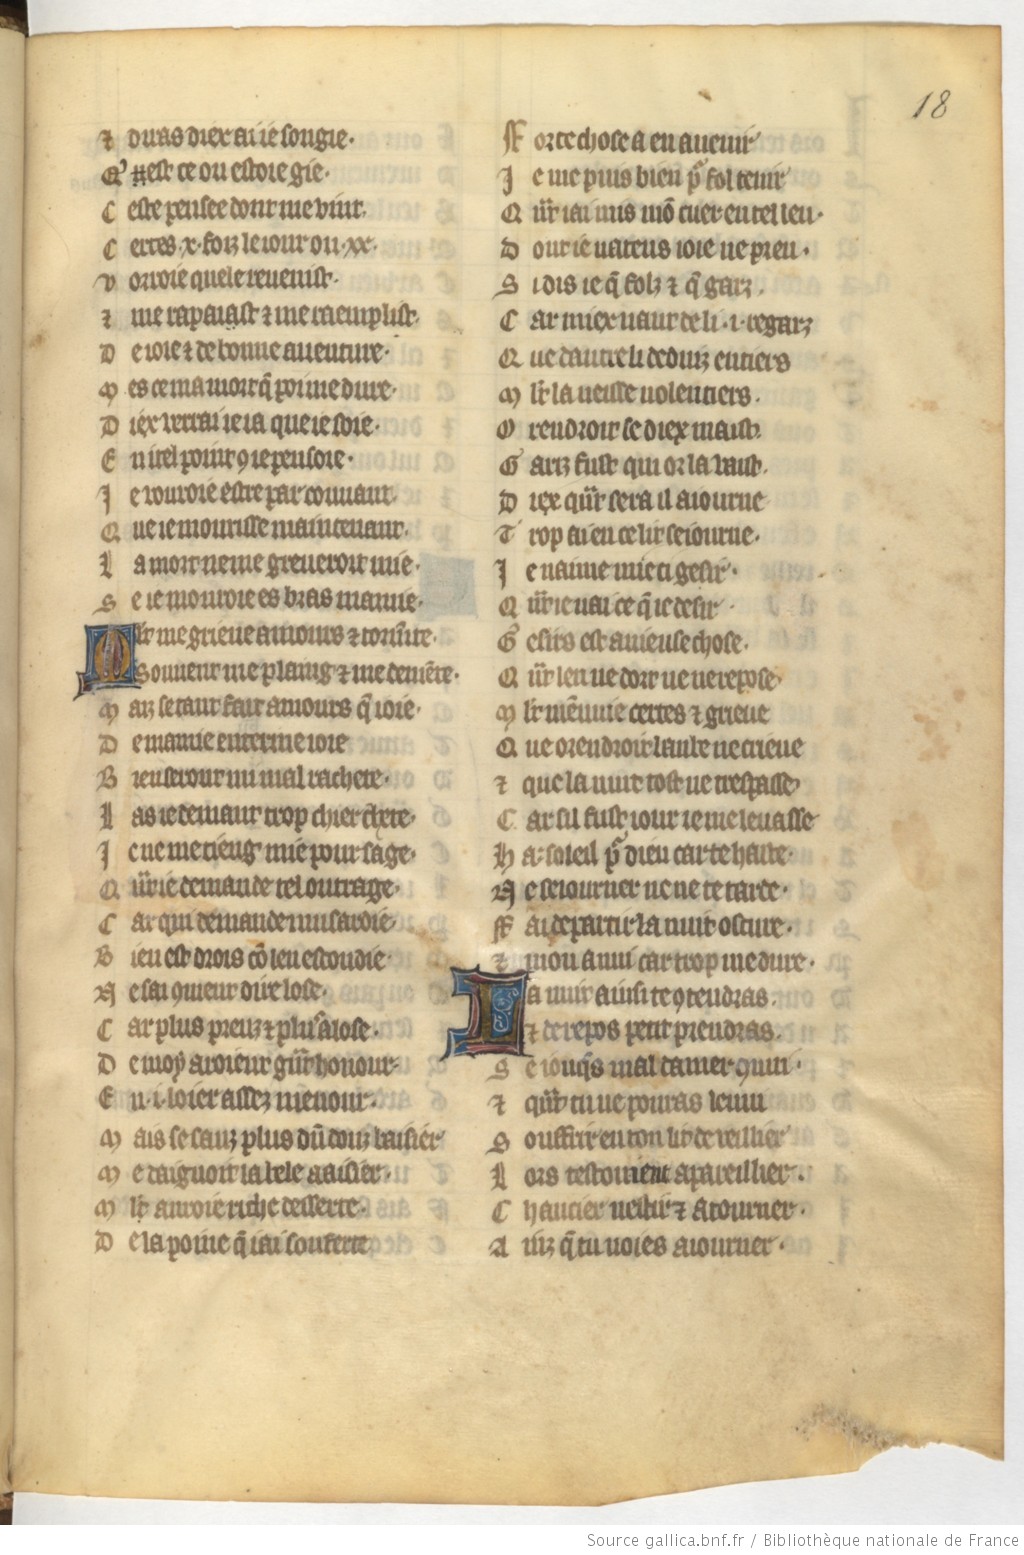 18
⁊ diras diex ai ie songie·
Q' est ce ou estoie gie·
C este pensee dont me vint·
C ertes·x·foiz le iour ou·xx·
V orroie quele reuenist·
⁊ me rapaiast ⁊ me raemplist·
D e ioie ⁊ de bonne auenture·
M es ce ma mort q̃ poi me dure·
D iex verrai ie ia que ie soie·
E n itel point 9 ie pensoie·
J e vouroie estre par couuant·
Q ue ie mourisse maintenant·
L a mort ne me greueroit mie·
S e ie mouroie es bras mamie·
M lt̃ me grieue amours ⁊ tormẽte·
souuent me plaing ⁊ me demẽte·
M az se tant fait amours q̃ ioie·
D e mamie enterme ioie
B ien seront mi mal rachete·
L as ie demant trop chier chete·
J e ne me tieng mie pour sage·
Q ũt ie demande tel outrage·
C ar qui demande musardie
B ien est drois cõ leu escondie·
N e sai 9ment dire lose·
C ar plus preuz ⁊ plus alose·
D e moy aroient gũt honour·
E n·i·loier assez menour·
M ais se sanz plus dũ douz baisier
M e daignoit la bele aaisier·
M lt̃ auroie riche desserte·
D e la poine q̃ iai soufferte
F orte chose a en auenir
J e me puis bien p̃ fol tenir
Q ũt iai mis mõ cuer en tel leu·
D ont ie natens ioie ne preu·
S i dis ie q̃ folz ⁊ q̃ garz·
C ar miex uaut de li·i·regarz
Q ue dautre li deduiz entiers
M lt̃ la ueisse uolentiers·
O rendroit se diex maist·
G ariz fust qui or la ueist·
D iex qũt sera il aiourne
T rop ai en ce lit seiourne·
J e naime mie ci gesir·
Q ũt ie nai ce q̃ ie desir
G esirs est anieuse chose·
Q ũt len ne dort ne ne repose
M lt̃ mẽnuie certes ⁊ grieue
Q ue orendroit laube ne crieue
⁊ que la nuit tost ne trespasse
C ar sil fust iour ie me leuasse
H a·soleil p̃ dieu car te haste·
N e seiourner ne ne te tarde·
F ai departir la nuit oscure·
⁊ mon anui car trop me dure·
L a nuit ainsi te 9tendras·
⁊ de repos petit prendras·
S e ionq̃s mal damer 9nui·
⁊ qũt tu ne pouras lenui
S ouffrir en ton lit de veillier
L ors testouient apareillier·
C haucier uestir ⁊ atourner·
A inz q̃ tu uoies aiourner·
Source gallica.bnf.fr / Bibliothèque nationale de France